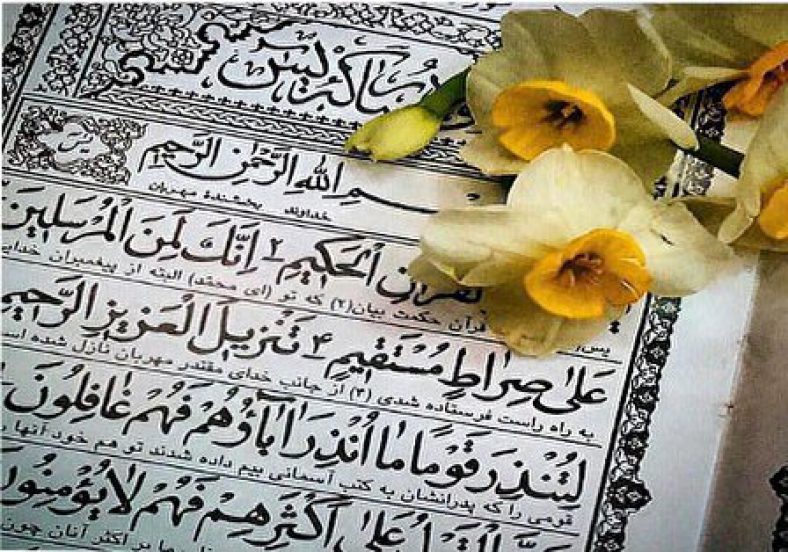 مبارکه یس
یس
بسم الله الرحمن الرحیم
خداوند بخشندهٔ مهربان
لقرآن الحکیم ۲ انك لمن المرسلین
پس قرآن حکمت بیان (۲) که تو (ای محمّد) البته از پیغمبران خدایی
علی صراط مستقیم ۴ تنزیل العزیز الرحیم
به راه راست فرستاده شدی (۴) از جانب خدای مقتدر مهربان نازل شده است
لتنذر قوما ما انذر اباؤهم فهم غافلون
قومی را که پدرانشان به کتب آسمانی بیم داده شدند تو هم خود آنها را
القول علی اکثرهم فهم لا یؤمنون
ما بر اکثر آنان چون